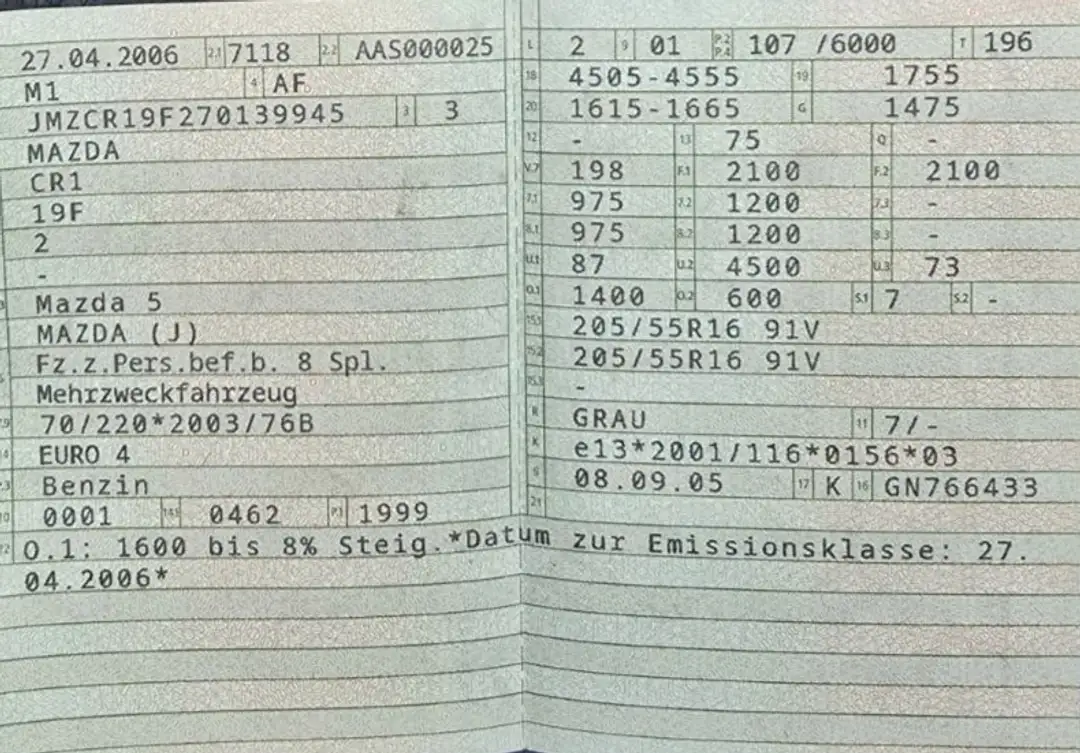 27.04.2006 2.1 7118 2.2 AAS000025
M1 4 AF
JMZCR19F270139945 3 3
MAZDA
CR1
19F
2
-
Mazda 5
MAZDA (J)
Fz.z.Pers.bef.b. 8 Spl.
Mehrzweckfahrzeug
70/220*2003/76B
EURO 4
Benzin
0001 14.1 0462 P.1 1999
L 2 9 01 P.2 P.4 107 /6000 T 196
18 4505-4555 19 1755
20 1615-1665 G 1475
12 - 13 75 Q -
V.7 198 F.1 2100 F.2 2100
7.1 975 7.2 1200 7.3 -
8.1 975 8.2 1200 8.3 -
U.1 87 U.2 4500 U.3 73
O.1 1400 O.2 600 S.1 7 S.2 -
15.1 205/55R16 91V
15.2 205/55R16 91V
15.3 -
R GRAU 11 7/-
K e13*2001/116*0156*03
6 08.09.05 17 K 16 GN766433
21
O.1: 1600 bis 8% Steig.*Datum zur Emissionsklasse: 27.
04.2006*